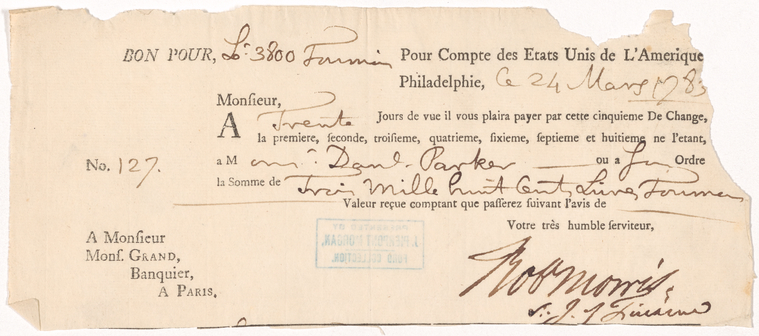 BON POUR, Ls. 3800 Tournois Pour Compte des Etats Unis de L'Amerique
Philadelphie, Ce 24 Mars 1783
Monſieur,
A Trente Jours de vue il vous plaira payer par cette cinquieme De Change,
la premiere, ſeconde, troiſieme, quatrieme, ſixieme, ſeptieme et huitieme ne l'etant,
No. 127. a M onsr. Danl. Parker ou a Son Ordre
la Somme de Trois Mille huit Cents Livres Tournois
Valeur reçue comptant que paſſerez ſuivant l'avis de
Votre très humble ſerviteur,
PRESENTED BY
J. PIERPONT MORGAN,
FORD COLLECTION.
A Monſieur
Monſ. GRAND,
Banquier,
A PARIS.
Rob Morris
S. J. of Finance